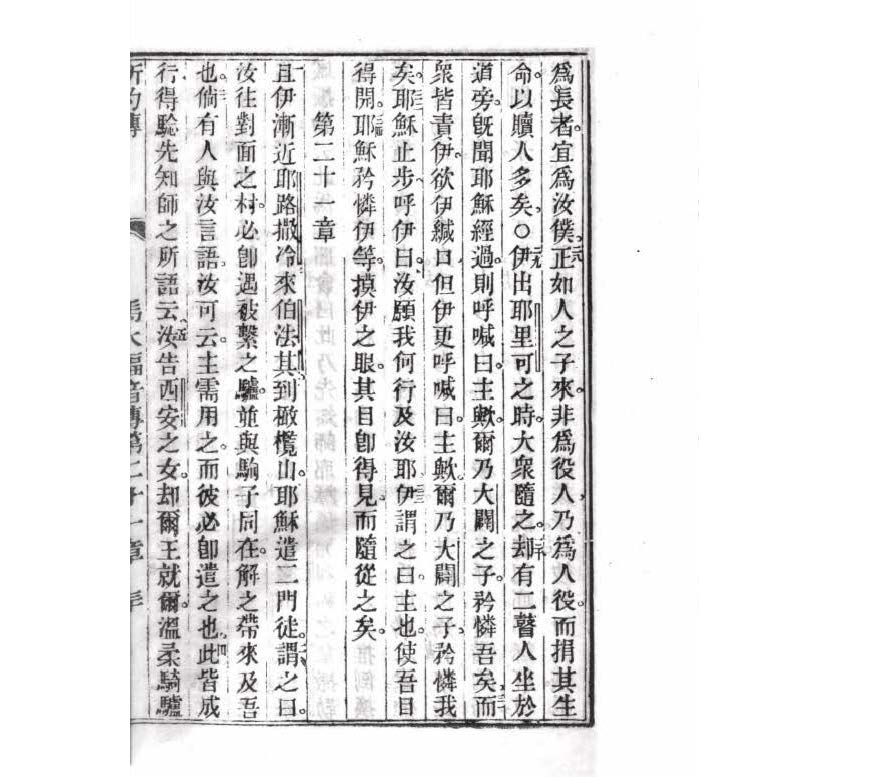 爲長者宜爲汝僕二八正如人之子來非爲役人乃爲人役而捐其生
命以贖人多矣○二九伊出耶里可之時大衆隨之三十却有二瞽人坐於
道旁旣聞耶穌經過則呼喊曰主歟爾乃大闢之子矜憐吾矣三一而
衆皆責伊欲伊緘口但伊更呼喊曰主歟爾乃大闢之子矜憐我
矣三二耶穌止步呼伊曰汝願我何行及汝耶三三伊謂之曰主也使吾目
得開三四耶穌矜憐伊等摸伊之眼其目卽得見而隨從之矣
第二十一章
一且伊漸近耶路撒冷來伯法其到橄欖山耶穌遣二門徒二謂之曰
汝往對面之村必卽遇被繫之驢並與駒子同在解之帶來及吾
也三倘有人與汝言語汝可云主需用之而彼必卽遣之也四此皆成
行得騐先知師之所語云五汝告西安之女却爾王就爾溫柔騎驢
新約傳 馬太福音傳第二十一章